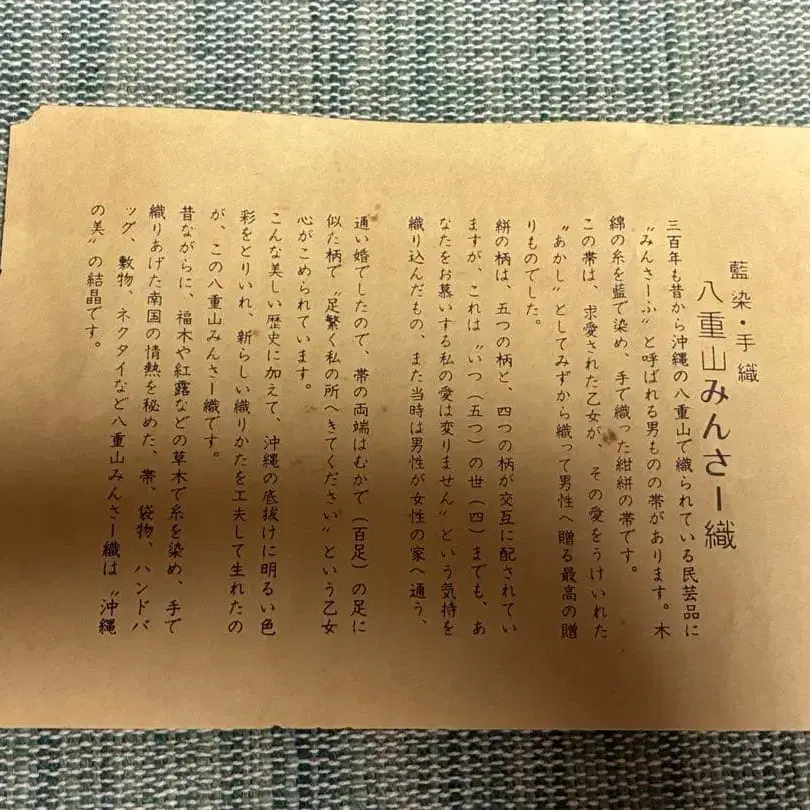 藍染・手織
八重山みんさー織
三百年も昔から沖縄の八重山で織られている民芸品に
〝みんさーふ〟と呼ばれる男ものの帯があります。木
綿の糸を藍で染め、手で織った紺絣の帯です。
この帯は、求愛された乙女が、その愛をうけいれた
〝あかし〟としてみずから織って男性へ贈る最高の贈
りものでした。
絣の柄は、五つの柄と、四つの柄が交互に配されてい
ますが、これは〝いつ(五つ)の世(四)までも、あ
なたをお慕いする私の愛は変りません〟という気持を
織り込んだもの、また当時は男性が女性の家へ通う、
通い婚でしたので、帯の両端はむかで(百足)の足に
似た柄で〝足繁く私の所へきてください〟という乙女
心がこめられています。
こんな美しい歴史に加えて、沖縄の底抜けに明るい色
彩をとりいれ、新らしい織りかたを工夫して生れたの
が、この八重山みんさー織です。
昔ながらに、福木や紅露などの草木で糸を染め、手で
織りあげた南国の情熱を秘めた、帯、袋物、ハンドバ
ッグ、敷物、ネクタイなど八重山みんさー織は〝沖縄
の美〟の結晶です。